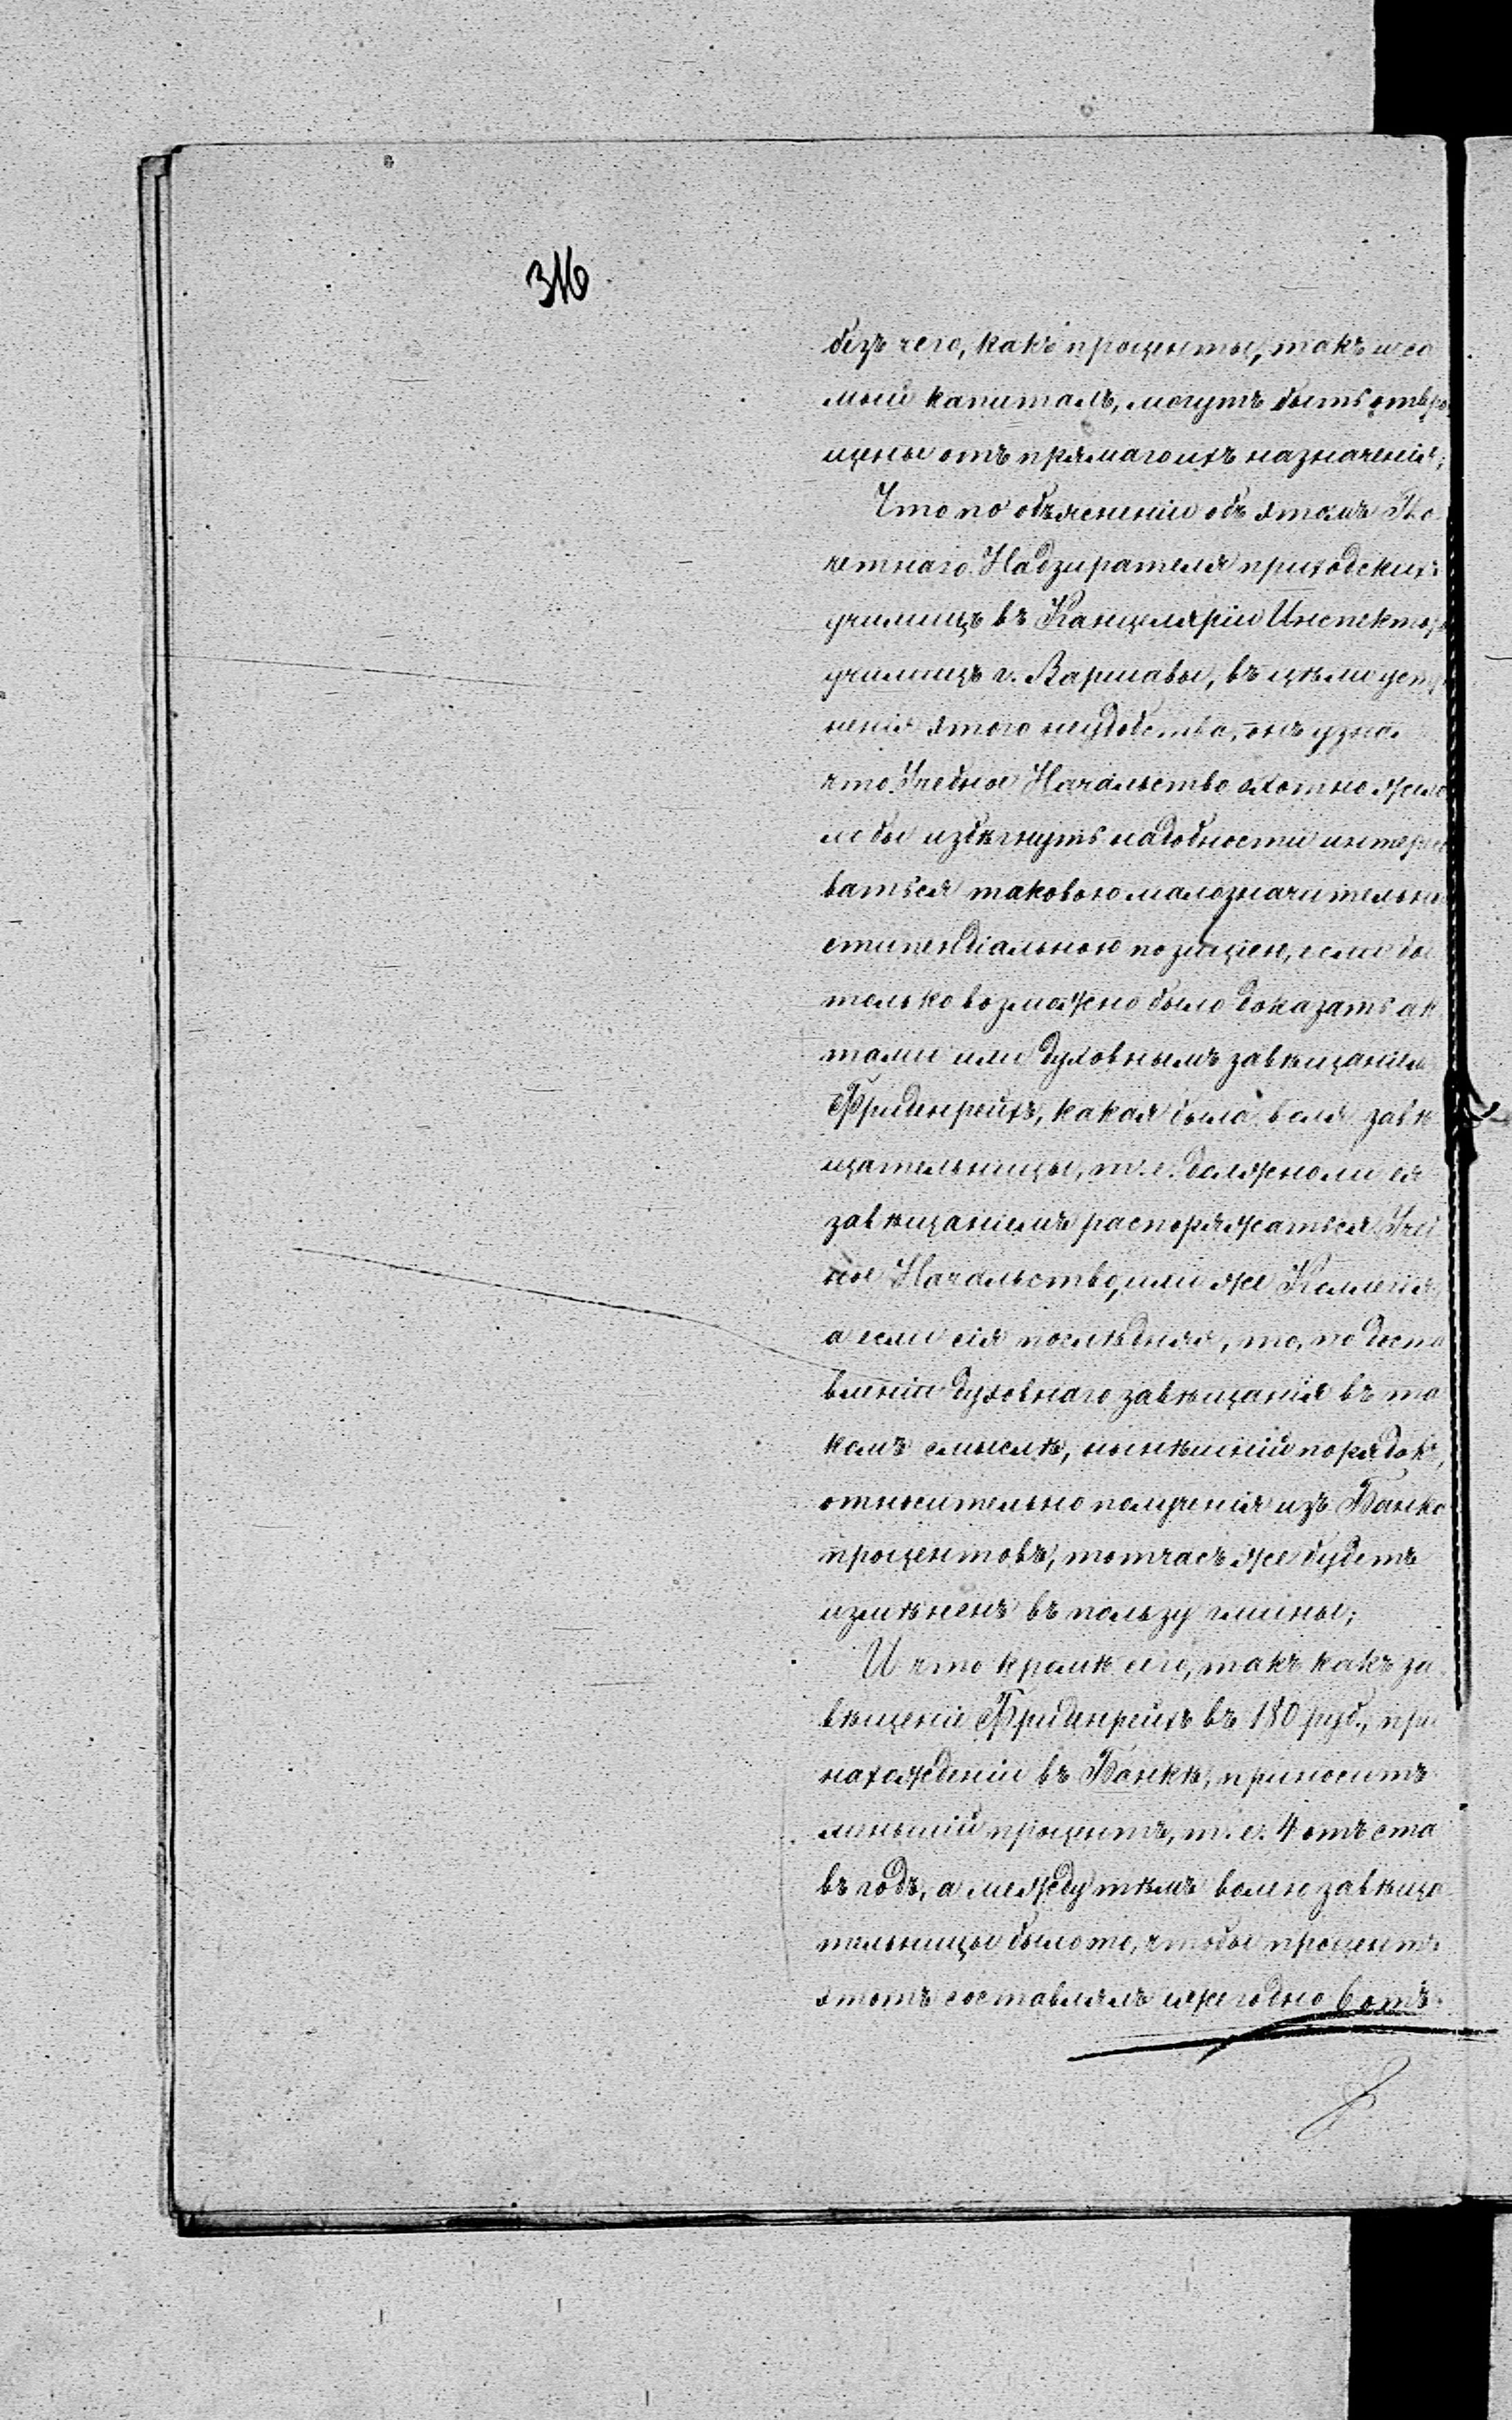 316
безъ чего, какъ проценты, такъ и са
мый капиталъ, могутъ быть отвра
щены отъ прямаго ихъ назначенія;
Что по объясненіи объ этомъ По
четнаго Надзирателя приходскихъ
училищъ въ Канцеляріи Инспектора
училищъ г. Варшавы, въ цѣли устра
ненія этого неудобства, онъ узналъ
что Учебное Начальство охотно жела
ло бы избѣгнуть надобности интересо
ваться таковою малозначительною
стипендіальною позиціею, если бы
только возможно было доказать ак
тами или духовнымъ завѣщаніемъ
Фриденрейхъ, какая была воля завѣ
щательницы, т. е. должно ли ея
завѣщаніемъ распоряжаться Учеб
ное Начальство, или же Коллегія,
а если сія послѣдняя, то, по доста
вленіи духовнаго завѣщанія въ та
комъ смыслѣ, нынѣшній порядокъ,
относительно полученія изъ Банка
процентовъ, тотчасъ же будетъ
измѣненъ въ пользу гмины;
И что кромѣ сего, такъ какъ за
вѣщеніе Фриденрейхъ въ 180 руб., при
нахожденіи въ Банкѣ, приноситъ
меньшій процентъ, т. е. 4 отъ ста
въ годъ, а между тѣмъ волею завѣща
тельницы было то, чтобы процентъ
этотъ составлялъ ежегодно 6 отъ